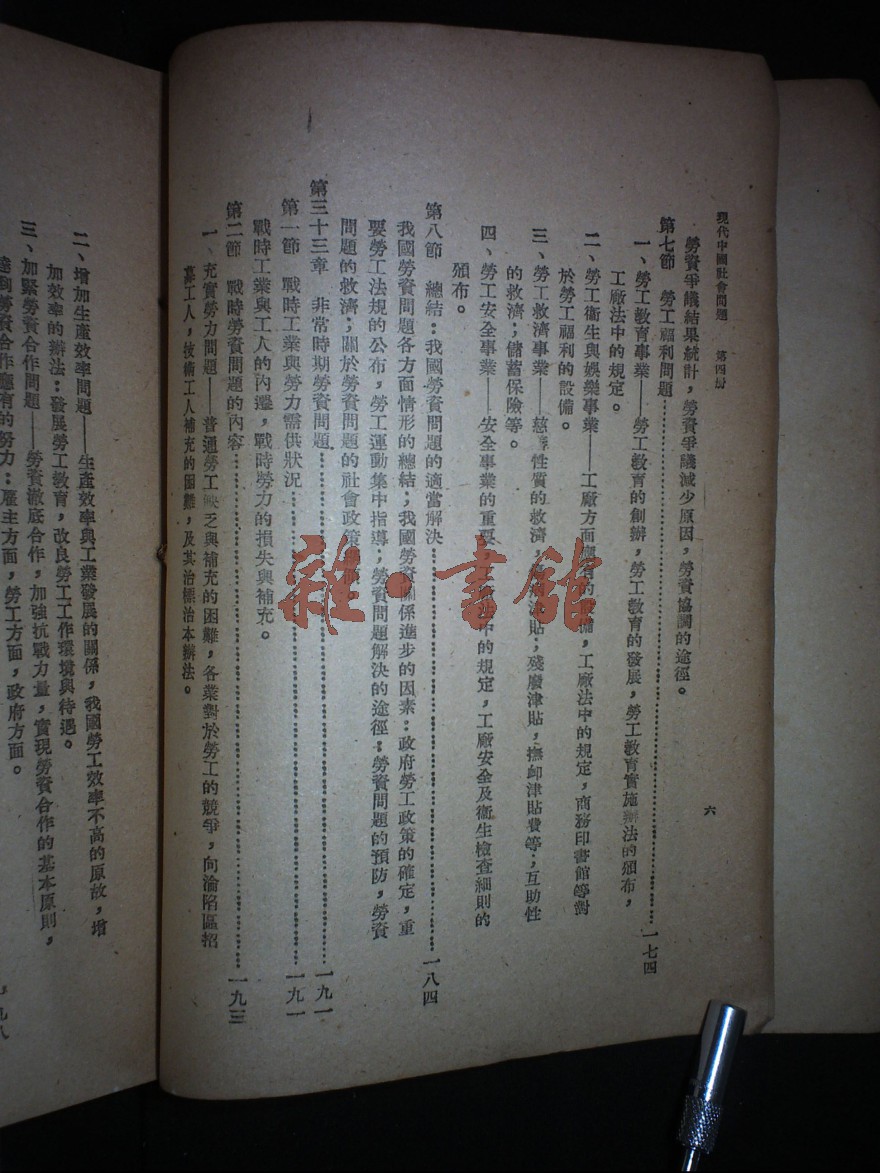 現代中國社會問題　第四册
六
勞資爭議結果統計，勞資爭議減少原因，勞資協調的途徑。
第七節　勞工福利問題……一七四
一、勞工教育事業——勞工教育的創辦，勞工教育的發展，勞工教育實施辦法的頒布，
工廠法中的規定。
二、勞工衞生與娛樂事業——工廠方面應有的設備，工廠法中的規定，商務印書館等對
於勞工福利的設備。
三、勞工救濟事業——慈善性質的救濟，津貼；殘廢津貼，撫卹津貼費等；互助性
的救濟；儲蓄保險等。
四、勞工安全事業——安全事業的重要，中的規定，工廠安全及衞生檢查細則的
頒布。
第八節　總結：我國勞資問題的適當解決……一八四
我國勞資問題各方面情形的總結；我國勞資關係進步的因素：政府勞工政策的確定，重
要勞工法規的公布，勞工運動集中指導；勞資問題解決的途徑：勞資問題的預防，勞資
問題的救濟；關於勞資問題的社會政策
第三十三章　非常時期勞資問題……一九一
第一節　戰時工業與勞力需供狀況……一九一
戰時工業與工人的內遷，戰時勞力的損失與補充。
第二節　戰時勞資問題的內容……一九三
一、充實勞力問題——普通勞工缺乏與補充的困難，各業對於勞工的競爭，向淪陷區招
募工人，技術工人補充的困難，及其治標治本辦法。
二、增加生產效率問題——生產效率與工業發展的關係，我國勞工效率不高的原故，增
加效率的辦法：發展勞工教育，改良勞工工作環境與待遇。
三、加緊勞資合作問題——勞資澈底合作，加強抗戰力量，實現勞資合作的基本原則，
達到勞資合作應有的努力：雇主方面，勞工方面，政府方面。
雜·書館